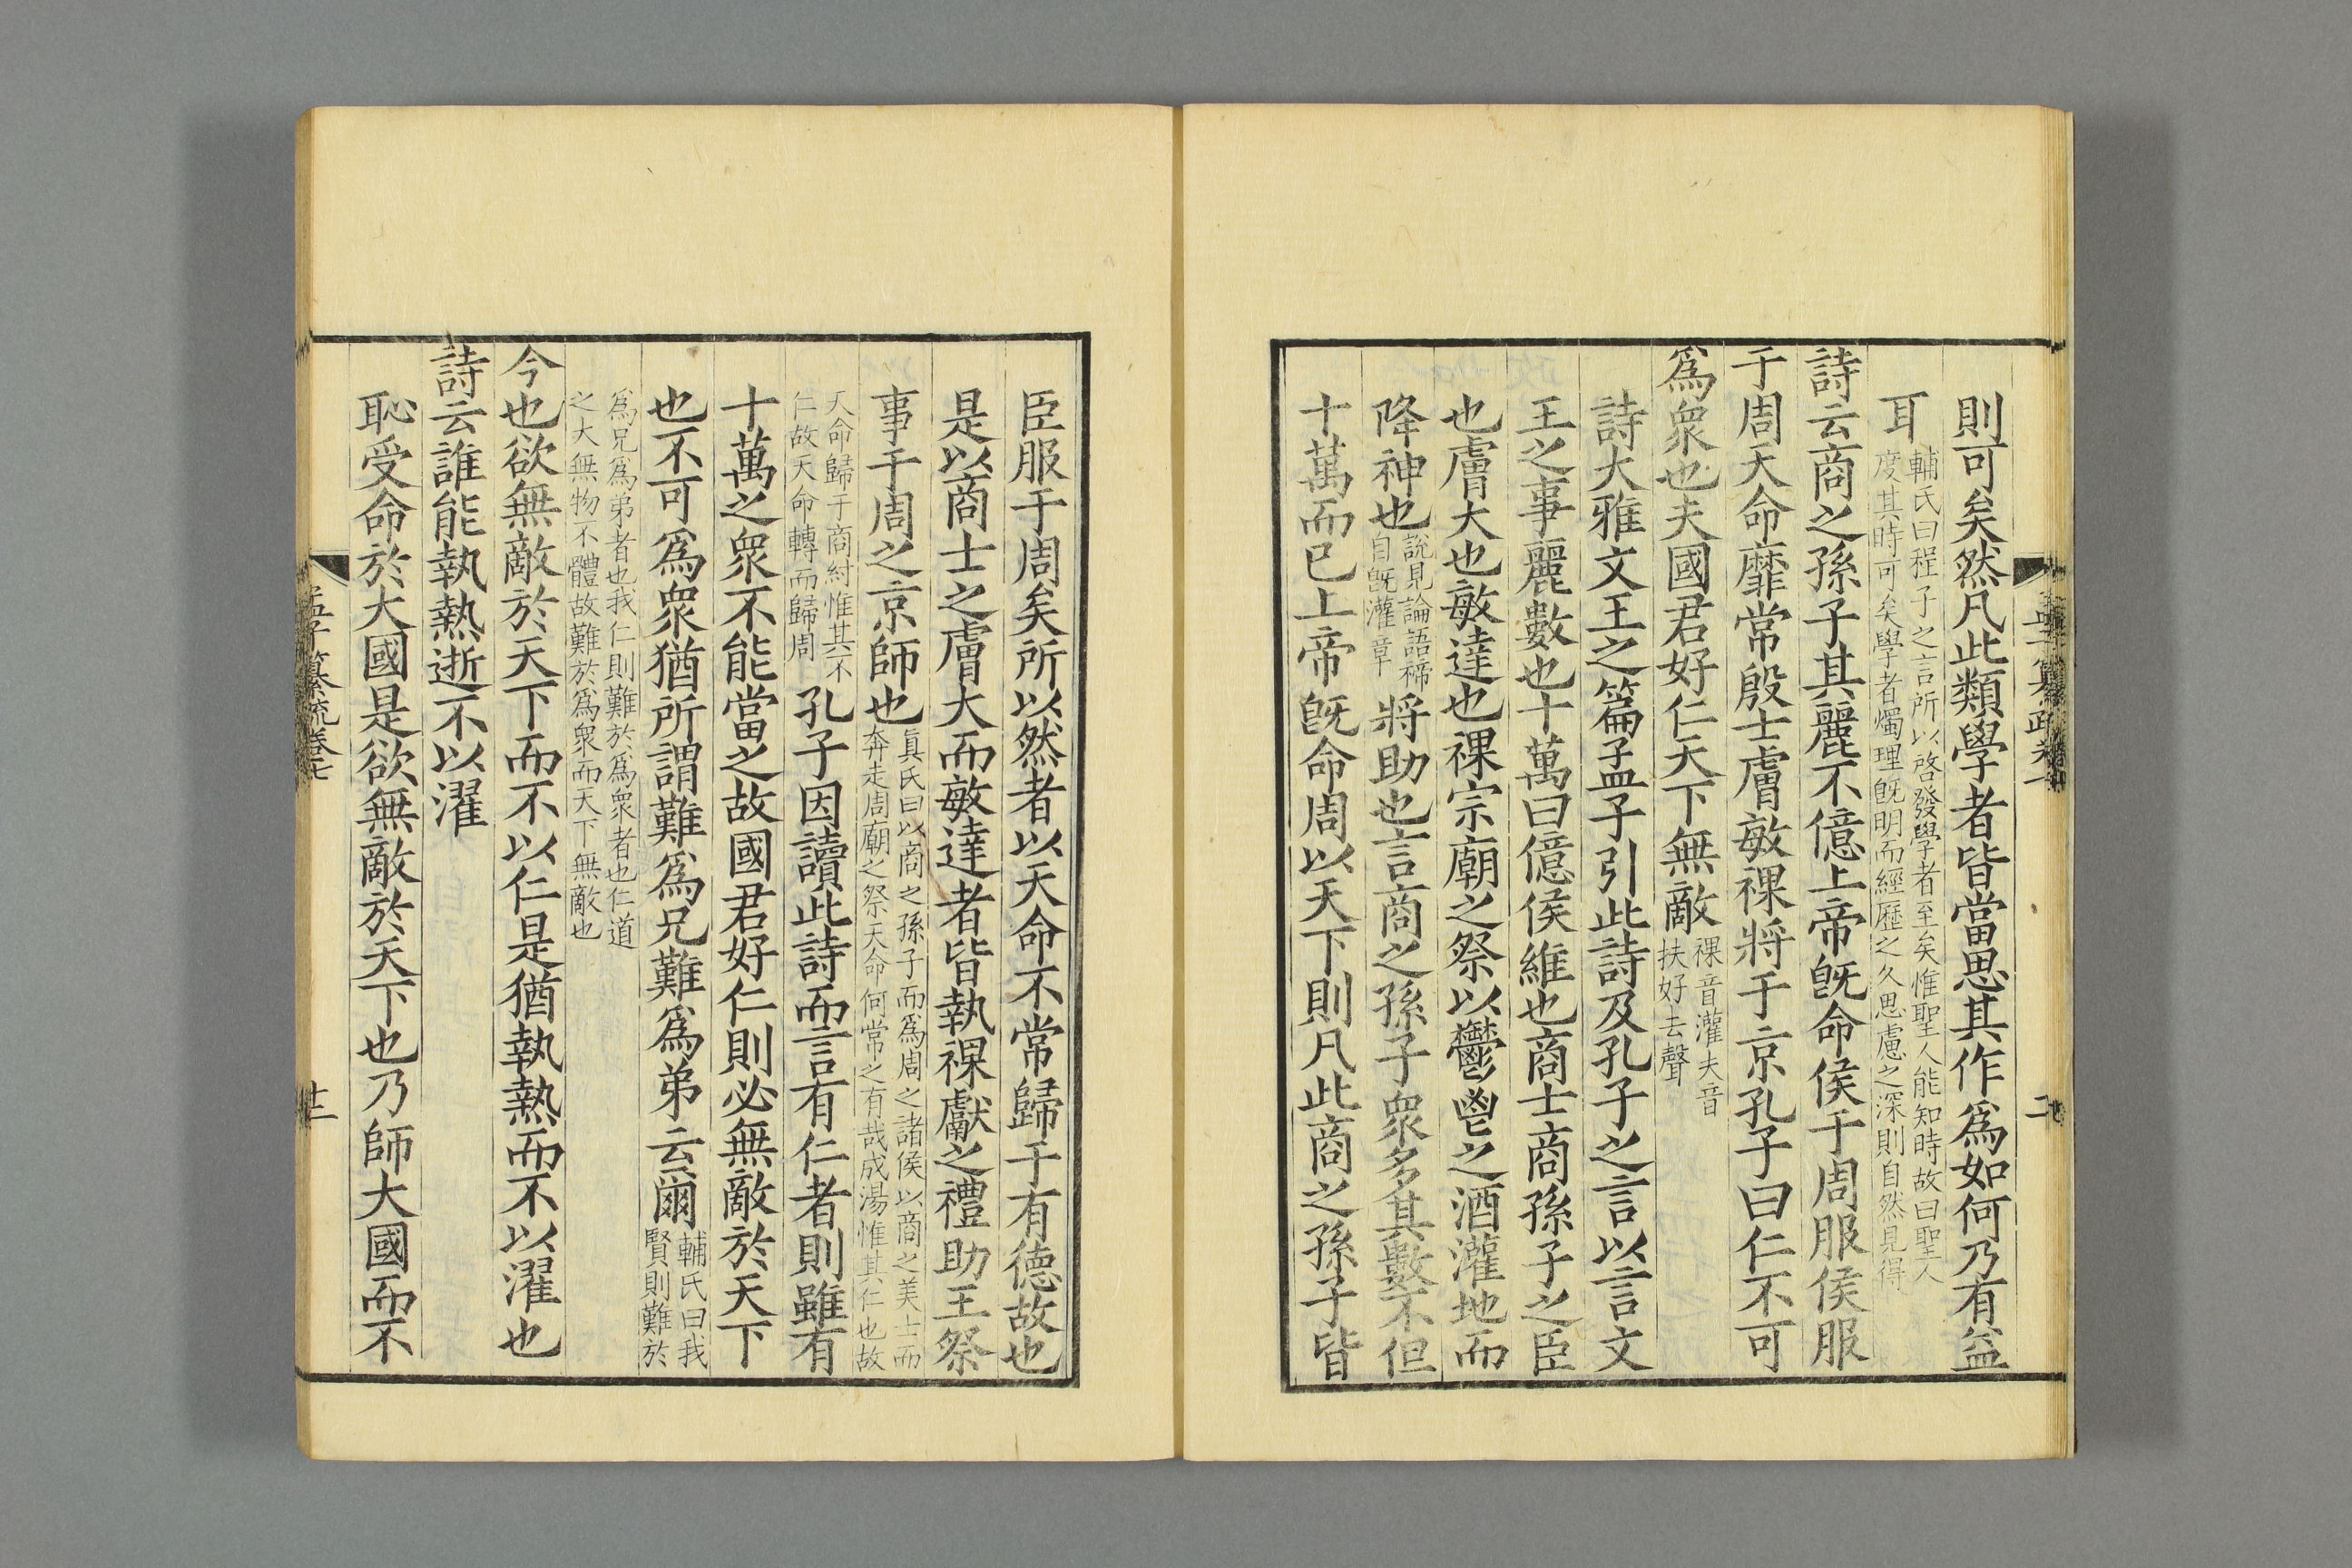 則可矣然凡此類學者皆當思其作爲如何乃有益
耳輔氏曰程子之言所以啓發學者至矣惟聖人能知時故曰聖人
度其時可矣學者燭理旣明而經歷之久思慮之深則自然見得
詩云商之孫子其麗不億上帝旣命侯于周服侯服
于周天命靡常殷士膚敏祼將于京孔子曰仁不可
爲衆也夫國君好仁天下無敵祼音灌夫音
扶好去聲
詩大雅文王之篇孟子引此詩及孔子之言以言文
王之事麗數也十萬曰億侯維也商士商孫子之臣
也膚大也敏達也祼宗廟之祭以鬱鬯之酒灌地而
降神也說見論語禘
自旣灌章
將助也言商之孫子衆多其數不但
十萬而已上帝旣命周以天下則凡此商之孫子皆
臣服于周矣所以然者以天命不常歸于有德故也
是以商士之膚大而敏達者皆執祼獻之禮助王祭
事于周之京師也眞氏曰以商之孫子而爲周之諸侯以商之美士而
奔走周廟之祭天命何常之有哉成湯惟其仁也故
天命歸于商紂惟其不
仁故天命轉而歸周
孔子因讀此詩而言有仁者則雖有
十萬之衆不能當之故國君好仁則必無敵於天下
也不可爲衆猶所謂難爲兄難爲弟云爾輔氏曰我
賢則難於
爲兄爲弟者也我仁則難於爲衆者也仁道
之大無物不體故難於爲衆而天下無敵也
今也欲無敵於天下而不以仁是猶執熱而不以濯也
詩云誰能執熱逝不以濯
恥受命於大國是欲無敵於天下也乃師大國而不
孟子纂疏卷七
十二